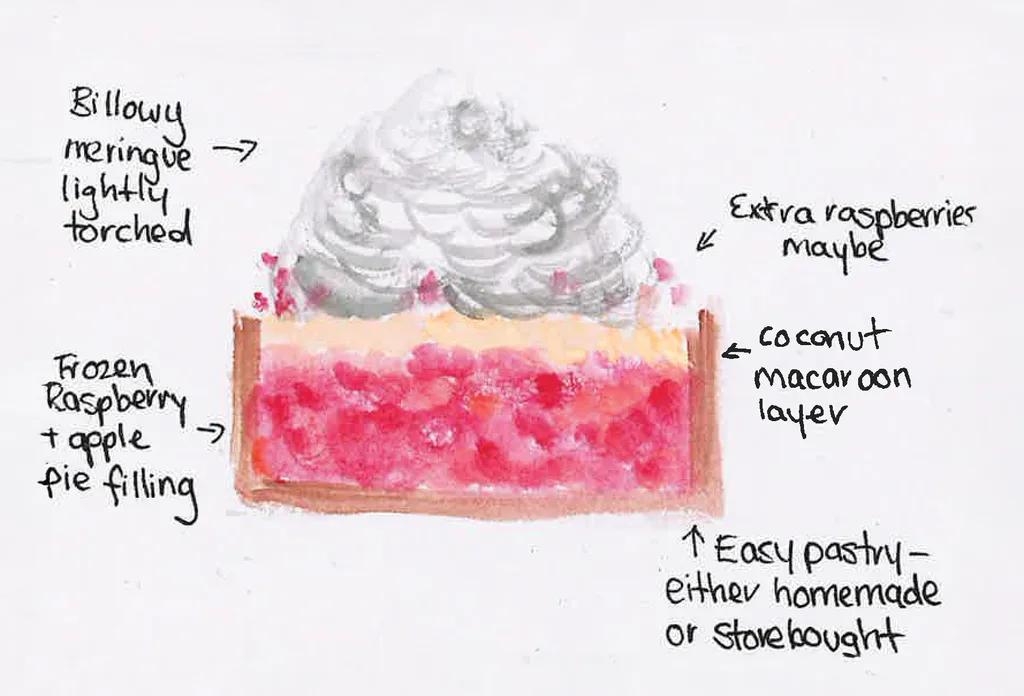 Billowy
meringue
lightly
torched
Extra raspberries
maybe
coconut
macaroon
layer
Frozen
Raspberry
+ apple
pie filling
Easy pastry –
either homemade
or storebought